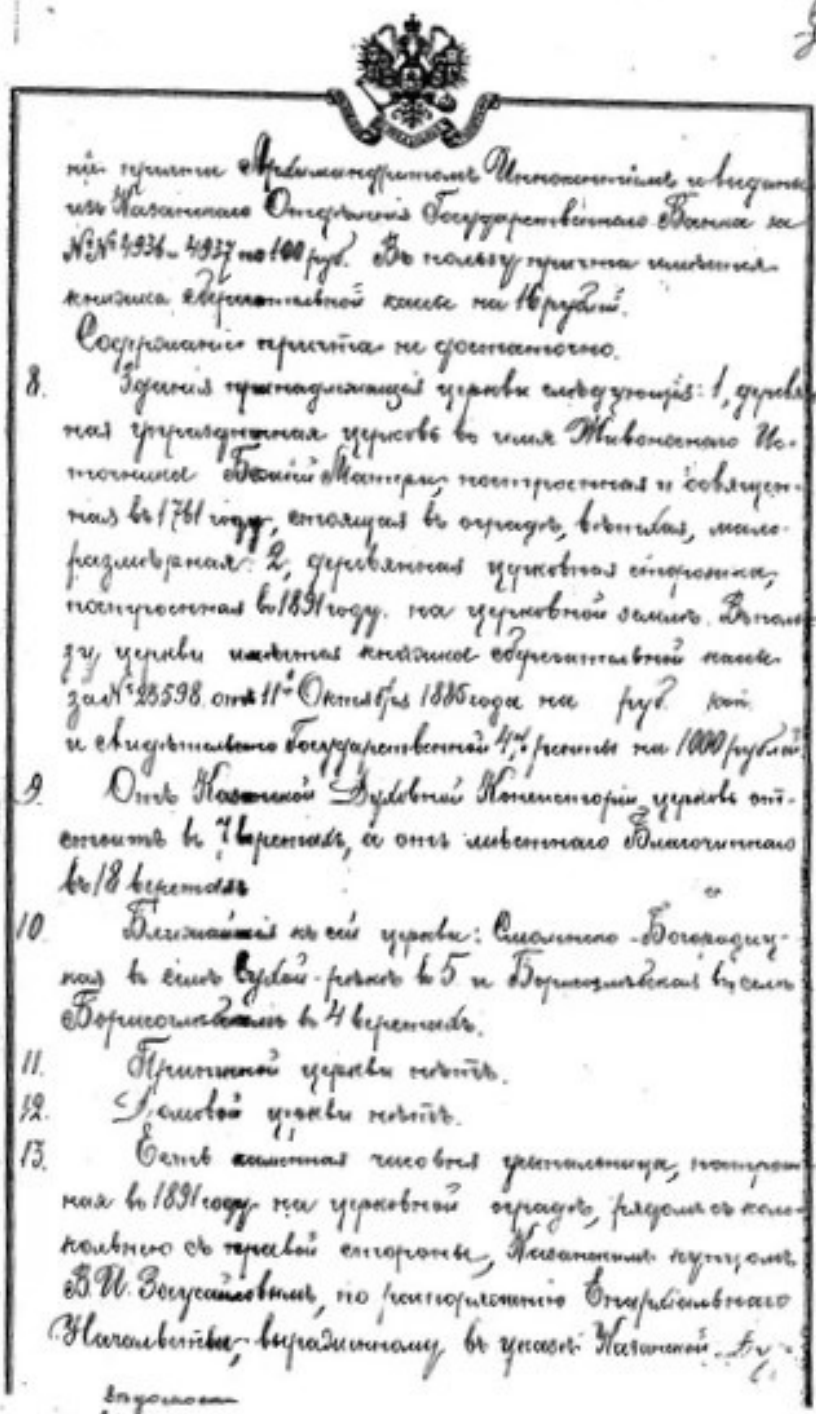 ніи приняты Архимандритомъ Иннокентіемъ и выданы
изъ Казанскаго Отдѣленія Государственнаго Банка за
№№ 4936 и 4937 по 100 руб. Въ пользу причта имѣется
книжка сберегательной кассы на 16 рублей.
Содержаніе причта не достаточно.
8. Зданія принадлежащія церкви слѣдующія: 1, деревян-
ная упраздненная церковь во имя Живоноснаго Ис-
точника Божіей Матери, построенная и освящен-
ная въ 1761 году, стоящая въ оградѣ, вѣтхая, мало-
размѣрная. 2, деревянная церковная сторожка,
построенная въ 1891 году. на церковной землѣ. Въ поль-
зу церкви имѣется книжка сберегательной кассы
за № 23598 отъ 11 Октября 1885 года на руб. коп.
и свидѣтельство Государственной 4% ренты на 1000 рублей.
9. Отъ Казанской Духовной Консисторіи церковь от-
стоитъ въ 7 верстахъ, а отъ мѣстнаго Благочиннаго
въ 18 верстахъ
10. Ближайшія къ сей церкви: Смоленско-Богородиц-
кая въ селѣ Сухой-рѣкѣ въ 5 и Борисоглѣбская въ селѣ
Борисоглѣбскомъ въ 4 верстахъ.
11. Приписной церкви нѣтъ.
12. Домовой церкви нѣтъ.
13. Есть каменная часовня усыпальница, построен-
ная въ 1891 году на церковной оградѣ, рядомъ съ коло-
кольнею съ правой стороны, Казанскимъ купцомъ
В. И. Заусайловымъ, по распоряженію Епархіальнаго
Начальства, выраженному въ указѣ Казанской Ду-